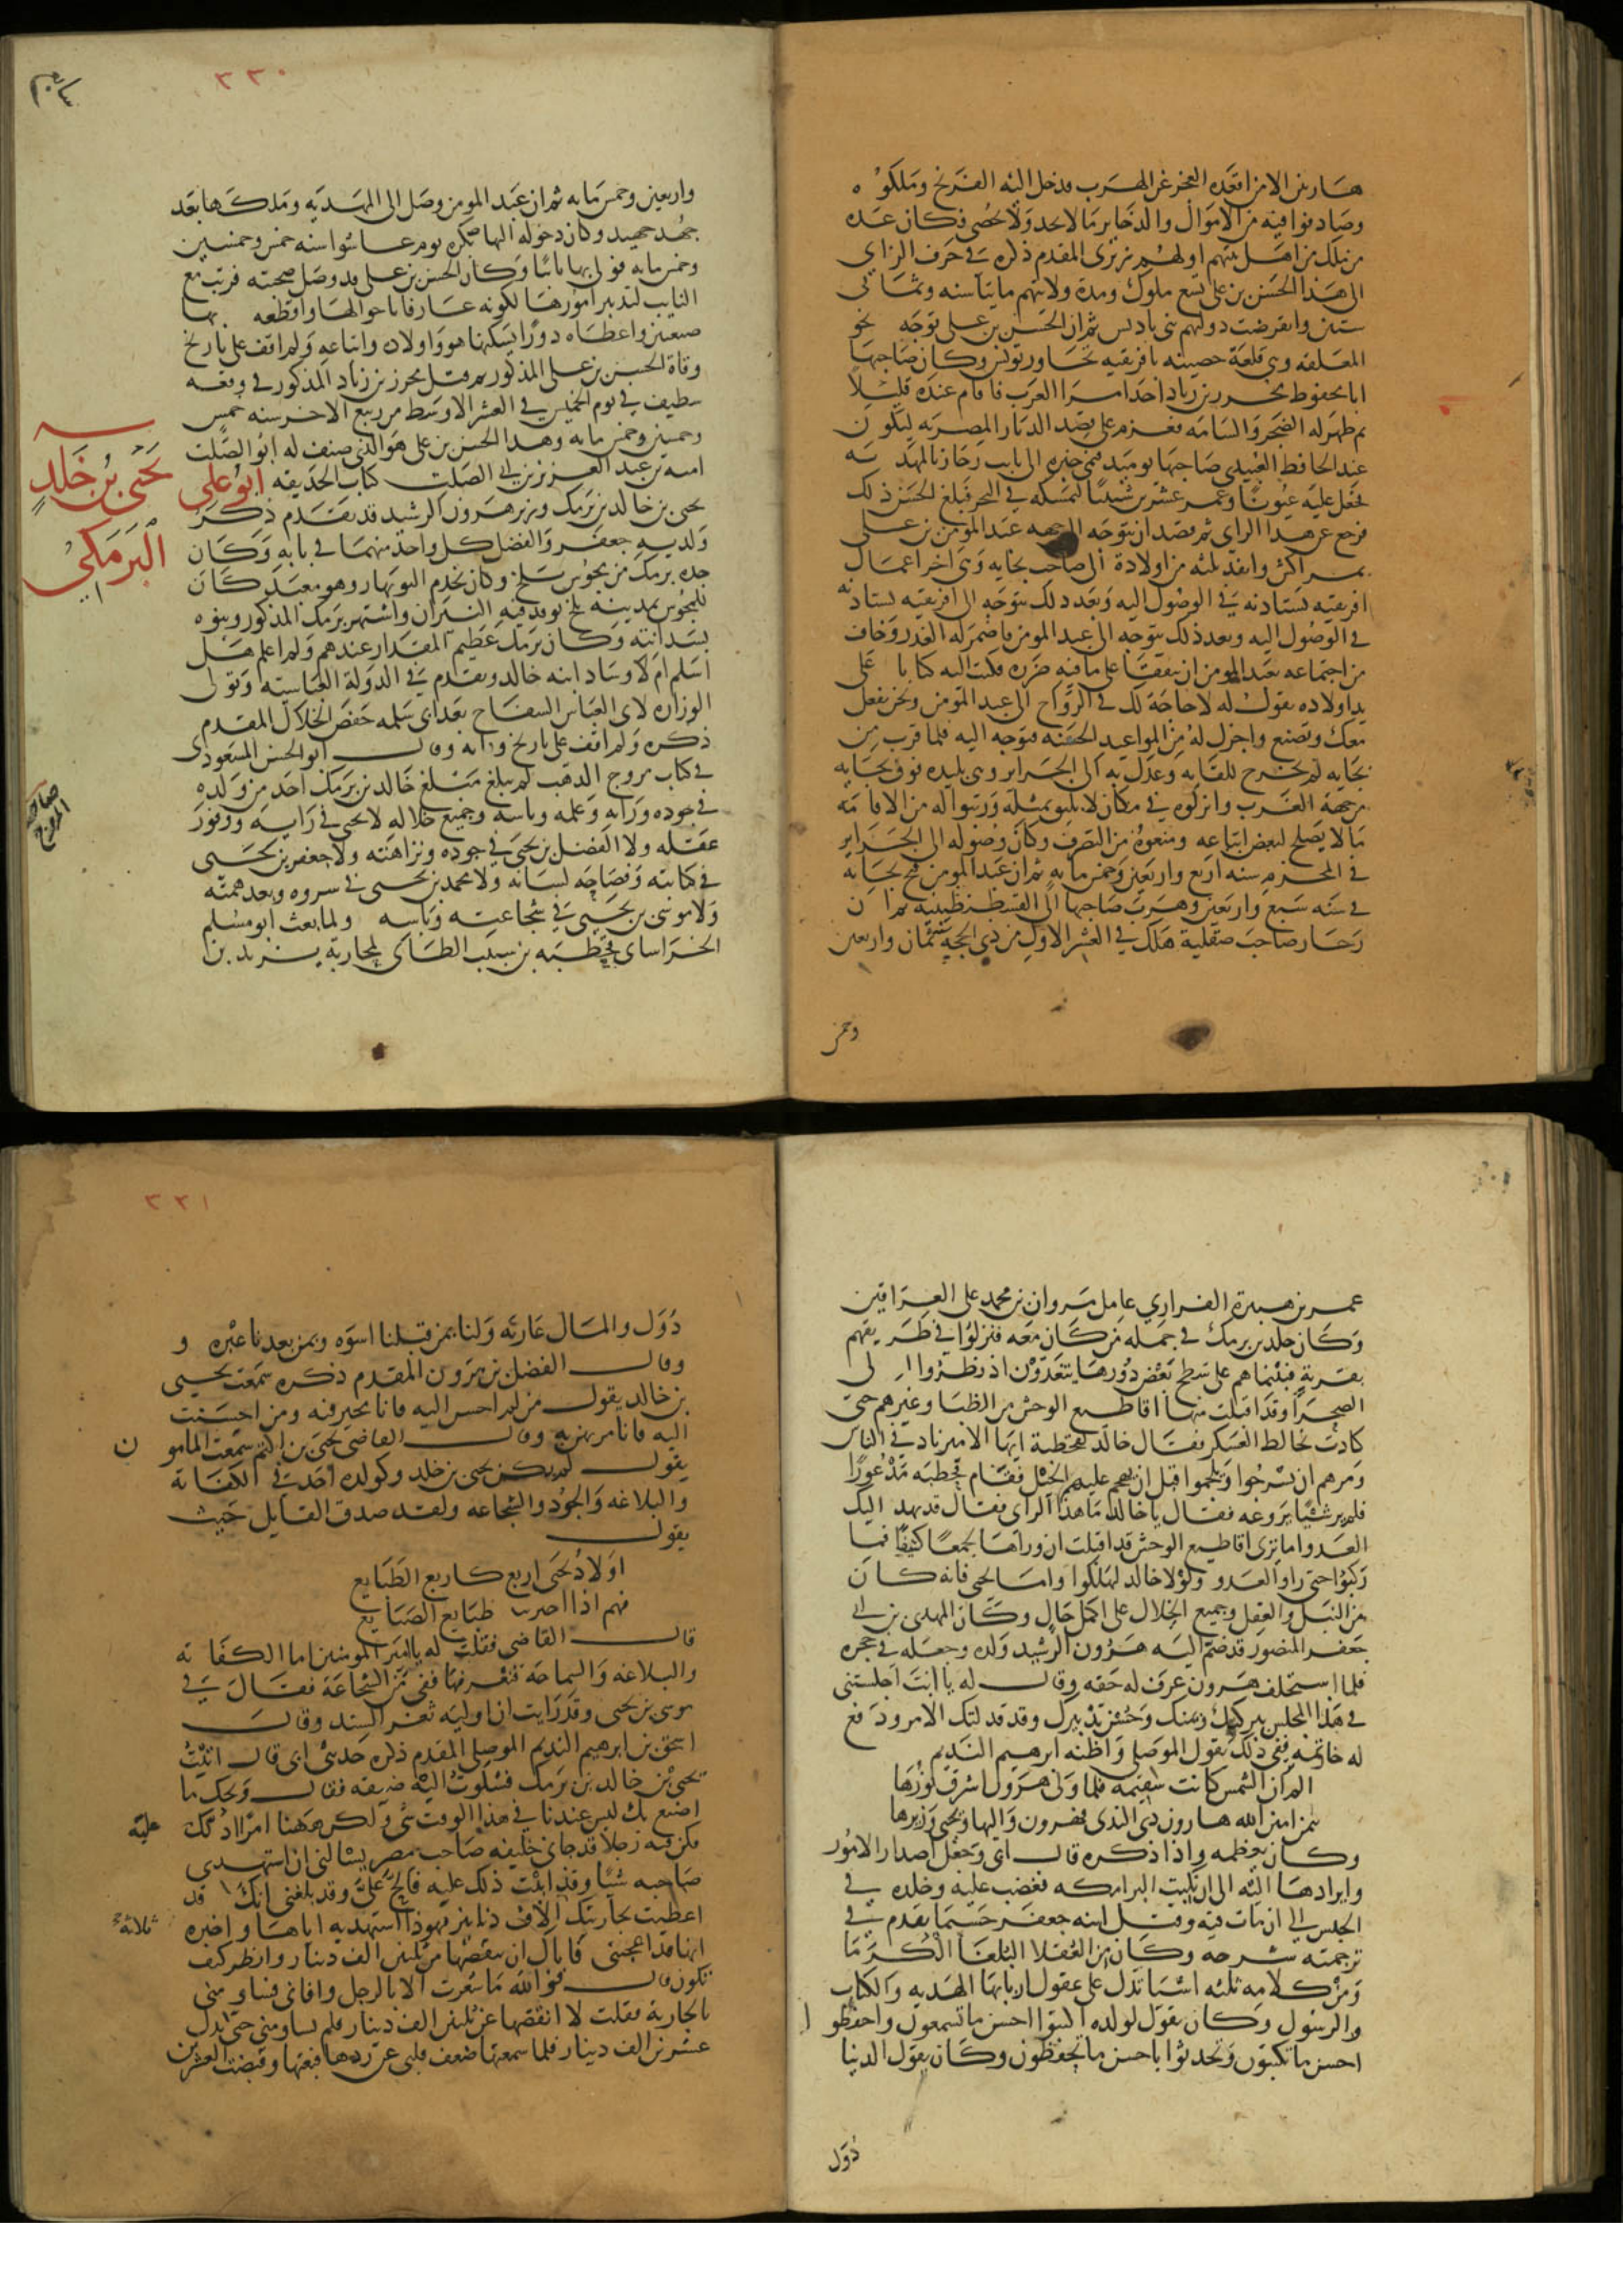 هاربين الا من اقعده العجز عن الهرب فدخل اليه الفرنج وملكوه
وصادفوا فيه من الاموال والذخاير ما لا يحد ولا يحصى فكان عدة
من ملك من اهل بيتهم اولهم زيري المقدم ذكره في حرف الزاي
الى هذا الحسن بن علي تسع ملوك ومدة ولايتهم مايتا سنه وثماني
سنين وانقرضت دولتهم بني باديس ثم ان الحسن بن علي توجه نحو
المعلقه وهي قلعة حصينه بافريقيه تجاور تونس وكان صاحبها
ابا محفوظ محرز بن زياد احد امرا العرب فاقام عنده قليلا
ثم ظهر له الضجر والسامه فعزم على قصد الديار المصريه ليكون
عند الحافظ العبيدي صاحبها يوميد فنمى خبره الى نايب رجار بالمهديه
فجعل عليه عيونا وعمر عشرين شينيا لتمسكه في البحر فبلغ الحسن ذلك
فرجع عن هذا الراي ثم قصد ان يتوجه الى جهه عبد المومن بن علي
بمراكش وانفذ ثلثه من اولادة الى صاحب بجايه وهي اخر اعمال
افريقيه يستاذنه في الوصول اليه وبعد ذلك يتوجه الى افريقيه يستاذنه
في الوصول اليه وبعد ذلك يتوجه الى عبد المومن فاضمر له الغدر وخاف
من اجتماعه بعبد المومن ان يتفقا على ما فيه ضرره فكتب اليه كتابا على
يد اولاده يقول له لا حاجة لك في الرواح الى عبد المومن ونحن نفعل
معك ونصنع واجزل له من المواعيد الحسنه فتوجه اليه فلما قرب من
بجايه لم يخرج للقايه وعدل به الى الجزاير وهي بليده فوق بجايه
من جهة الغرب وانزلوه في مكان لا يليق بمثله ورتبوا له من الاقامه
ما لا يصلح لبعض اتباعه ومنعوه من التصرف وكان وصوله الى الجزاير
في المحرم سنه اربع واربعين وخمس مايه ثم ان عبد المومن فتح بجايه
في سنه سبع واربعين وهرب صاحبها الى القسنطنطينيه ثم ان
رجار صاحب صقلية هلك في العشر الاول من ذي الحجة سنة ثمان واربعين
وخمس
٣٣٠
واربعين وخمس مايه ثم ان عبد المومن وصل الى المهديه وملكها بعد
جهد جهيد وكان دخوله اليها بكره يوم عاشوا سنه خمس وخمسين
وخمس مايه فولى بها نايبا وكان الحسن بن علي قد وصل صحبته فرتبه مع
النايب لتدبير امورها لكونه عارفا باحوالها واقطعه بها
ضيعتين واعطاه دورا يسكنها هو واولاده واتباعه ولم اقف على تاريخ
وفاة الحسن بن علي المذكور ثم قتل محرز بن زياد المذكور في وقعه
سطيف في يوم الخميس في العشر الاوسط من ربيع الاخر سنه خمس
وخمسين وخمس مايه وهذا الحسن بن علي هو الذي صنف له ابو الصلت
اميه بن عبد العزيز بن ابي الصلت كتاب الحديقه ابو علي
يحيى بن خلد
البرمكي
يحيى بن خالد بن برمك وزير هرون الرشيد قد تقدم ذكر
ولديه جعفر والفضل كل واحد منهما في بابه وكان
جده برمك من مجوس بلخ وكان يخدم النوبهار وهو معبد كان
للمجوس بمدينه بلخ توقد فيه النيران واشتهر برمك المذكور وبنوه
بسدانته وكان برمك عظيم المقدار عندهم ولم اعلم هل
اسلم ام لا وساد ابنه خالد وتقدم في الدولة العباسيه وتولى
الوزاره لابي العباس السفاح بعد ابي سلمه حفص الخلال المقدم
ذكره ولم اقف على تاريخ وفاته وقال ابو الحسن المسعودي
في كتاب مروج الذهب لم يبلغ مبلغ خالد بن برمك احد من ولده
في جوده ورايه وعلمه وباسه وجميع خلاله لا يحيى في رايه ووفور
عقله ولا الفضل بن يحيى في جوده ونزاهته ولا جعفر بن يحيى
في كتابته وفصاحه لسانه ولا محمد بن يحيى في سروه وبعد همته
ولا موسى بن يحيى في شجاعته وباسه ولما بعث ابو مسلم
الخراساني قحطبه بن شبيب الطائي لمحاربة يزيد بن
عمر بن هبيرة الفزاري عامل مروان بن محمد على العراقين
وكان خلد بن برمك في جمله من كان معه فنزلوا في طريقهم
بقرية فبينما هم على سطح بعض دورها يتغدون اذ نظروا الى
الصحرا وقد اقبلت منها اقاطيع الوحش من الظبا وغيرهم حتى
كادت تخالط العسكر فقال خالد لقحطبة ايها الامير ناد في الناس
ومرهم ان يسرجوا ويلجموا قبل ان يهجم عليهم الخيل فقام قحطبه مذعورا
فلم ير شيئا يروعه فقال يا خالد ما هذا الراي فقال قد نهد اليك
العدو اما ترى اقاطيع الوحش قد اقبلت ان وراها لجمعا كثيفا فما
ركبوا حتى راوا العدو ولولا خالد لهلكوا واما يحيى فانه كان
من النبل والعقل وجميع الخلال على اكمل حال وكان المهدي بن ابي
جعفر المنصور قد ضم اليه هرون الرشيد ولده وجعله في حجره
فلما استخلف هرون عرف له حقه وقال له يا ابت اجلستني
في هذا المجلس ببركتك ويمنك وحسن تدبيرك وقد قلدتك الامر ودفع
له خاتمه ففي ذلك يقول الموصلي واظنه ابرهيم النديم
الم تر ان الشمس كانت سقيمه فلما ولى هرون اشرق نورها
بيمن امين الله هارون ذي الندى فهرون واليها ويحيى وزيرها
وكان يعظمه واذا ذكره قال ابي وجعل اصدار الامور
وايرادها اليه الى ان نكبت البرامكه فغضب عليه وخلده في
الحبس الى ان مات فيه وقتل ابنه جعفر حسبما تقدم في
ترجمته شرحه وكان من العقلا البلغا الكرما
ومن كلامه ثلثه اشيا تدل على عقول اربابها الهديه والكتاب
والرسول وكان يقول لولده اكتبوا احسن ما تسمعون واحفظوا
احسن ما تكتبون وتحدثوا باحسن ما تحفظون وكان يقول الدنيا
دول
٣٣١
دول والمال عاريه ولنا بمن قبلنا اسوه وبمن بعدنا عبره و
وقال الفضل بن مرون المقدم ذكره سمعت يحيى
بن خالد يقول من لم احسن اليه فانا مخير فيه ومن احسنت
اليه فانا مرتهن به وقال القاضي يحيى بن اكثم سمعت المامون
يقول لم يكن يحيى بن خلد وكولده احد في الكفايه
والبلاغه والجود والشجاعه ولقد صدق القايل حيث
يقول
اولاد يحيى اربع كاربع الطبايع
فهم اذا اختبرتهم طبايع الصنايع
قال القاضي فقلت له يا امير المومنين اما الكفايه
والبلاغه والسماحه فنعرفها ففي من الشجاعه فقال في
موسى بن يحيى وقد رايت ان اوليه ثغر السند وقال
اسحق بن ابرهيم النديم الموصلي المقدم ذكره حدثني ابي قال اتيت
يحيى بن خالد بن برمك فشكوت اليه ضيقه فقال ويحك ما
اصنع بك ليس عندنا في هذا الوقت شي ولكن ههنا امر ادلك عليه
فكن فيه رجلا قد جاني خليفه صاحب مصر يسالني ان استهدي
صاحبه شيا وقد ابيت ذلك عليه فالح علي وقد بلغني انك قد
اعطيت بجاريتك الاف دنانير فهوذا استهديه اياها واخبره ثلاثه
انها قد اعجبتني فاياك ان تنقصها من ثلثين الف دينار وانظر كيف
تكون قال فوالله ما شعرت الا بالرجل وافاني فساومني
بالجارية فقلت لا انقصها عن ثلثين الف دينار فلم يساومني حتى بذل
عشرين الف دينار فلما سمعتها ضعف قلبي عن ردها فبعتها وقبضت العشرين